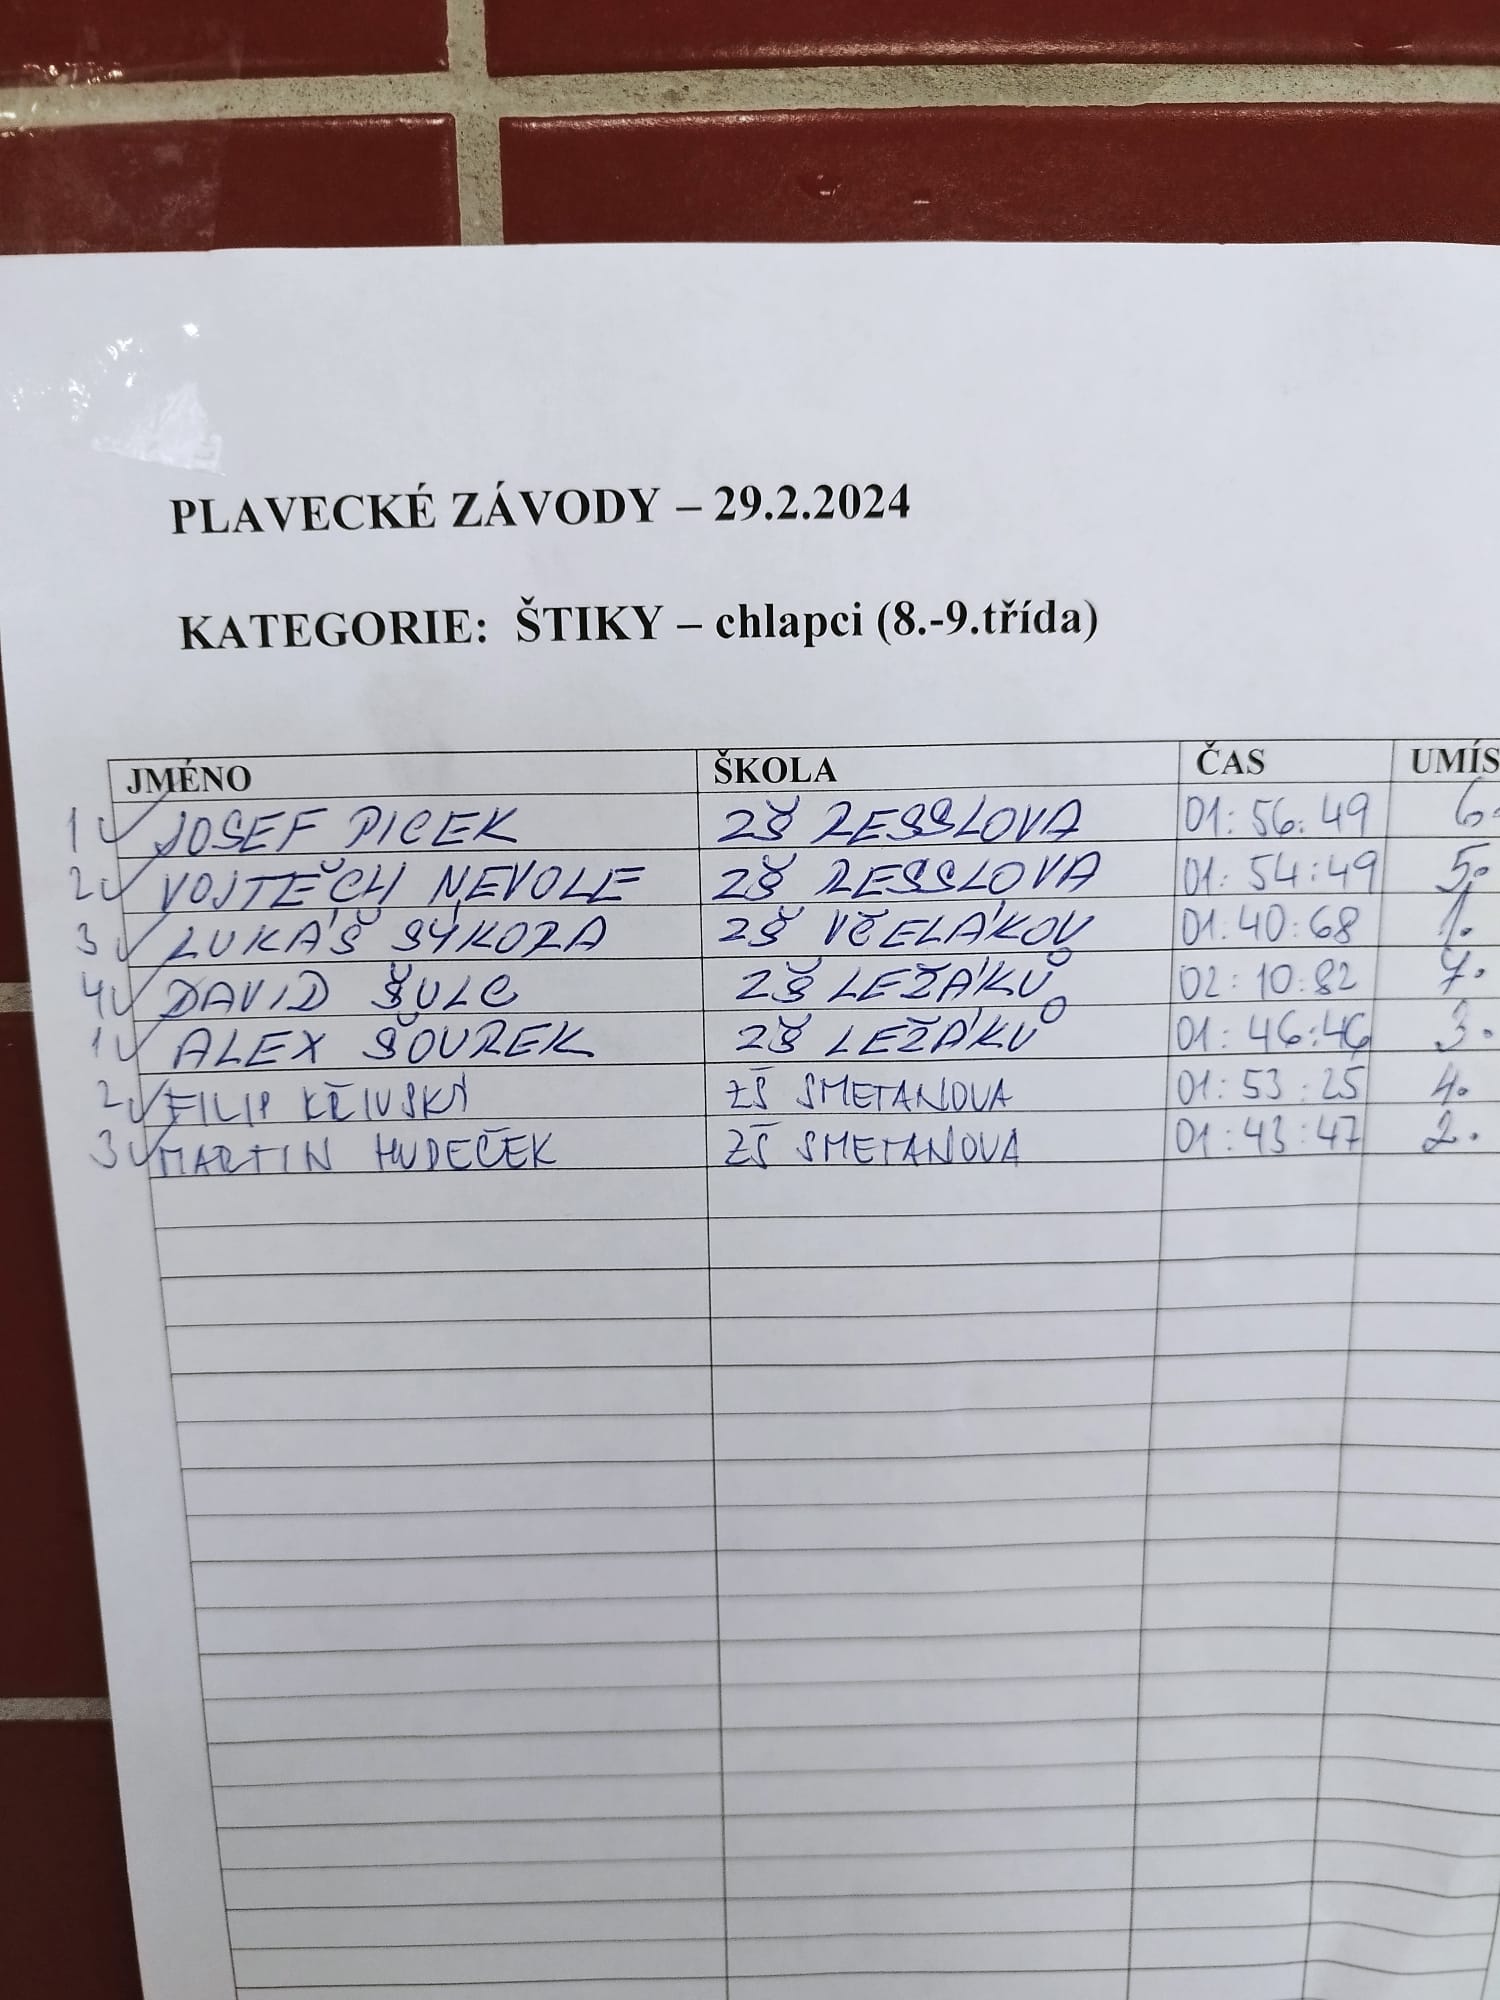 PLAVECKÉ ZÁVODY – 29.2.2024
KATEGORIE: ŠTIKY – chlapci (8.-9.třída)
JMÉNO ŠKOLA ČAS UMÍS
1 JOSEF PICEK ZŠ RESSLOVA 01:56:49 6.
2 VOJTĚCH NEVOLE ZŠ RESSLOVA 01:54:49 5.
3 LUKÁŠ SÝKORA ZŠ VČELÁKOV 01:40:68 1.
4 DAVID ŠULC ZŠ LEŽÁKŮ 02:10:82 7.
1 ALEX ŠOUREK ZŠ LEŽÁKŮ 01:46:46 3.
2 FILIP KŘIVSKÝ ZŠ SMETANOVA 01:53:25 4.
3 MARTIN HUDEČEK ZŠ SMETANOVA 01:43:47 2.